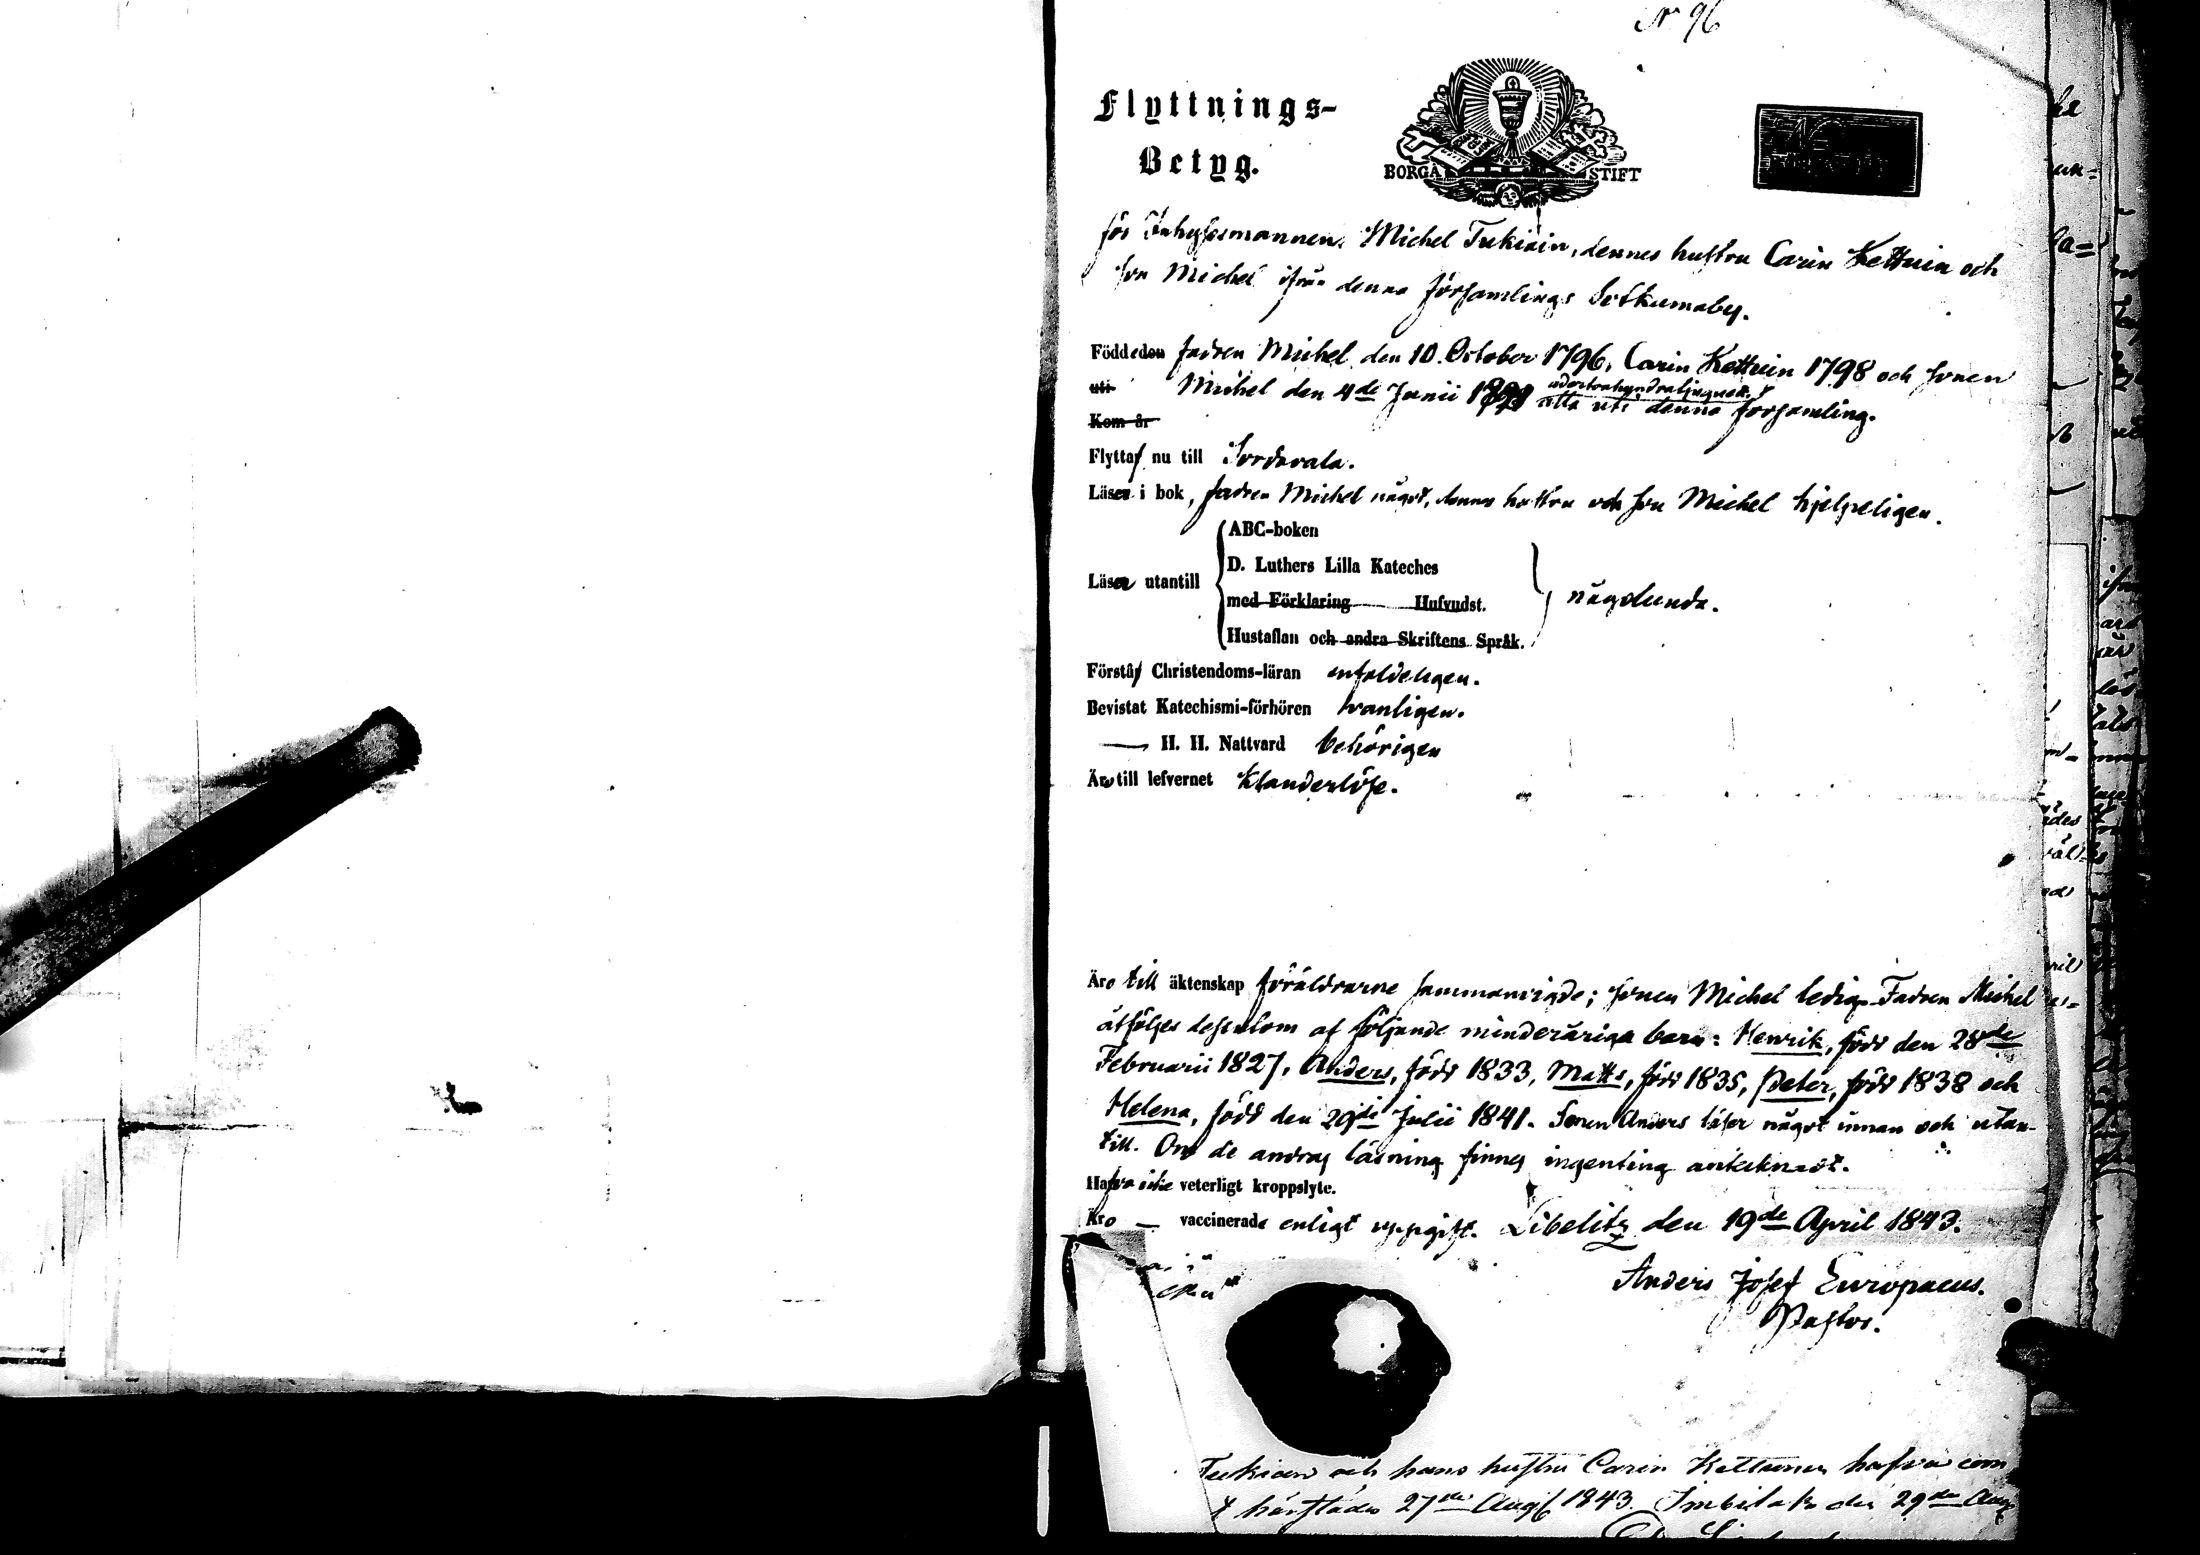 No 96
Flyttnings-
Betyg.
BORGÅ STIFT
för Inhysesmannen Michel Tukiain, dennes hustru Carin Kettuin och
Son Michel ifrån denna församlings Sotkumaby.
Födde den fadren Michel den 10. October 1796, Carin Kettuin 1798 och Sonen
uti Michel den 4de Junii 1821 adertonhundratjuguett
alla uti denna församling.
Kom år
Flytta nu till Sordavala.
Läsa i bok, fadren Michel något, dennes hustru och Son Michel hjelpeligen.
ABC-boken
D. Luthers Lilla Kateches
Läsa utantill
med Förklaring Hufvudst.
någolunda.
Hustaflan och andra Skriftens Språk.
Förstå Christendoms-läran enfaldeligen.
Bevistat Katechismi-förhören vanligen.
— H. H. Nattvard behörigen
Äro till lefvernet Klanderlöse.
Äro till äktenskap föräldrarne sammanvigde; Sonen Michel ledig. Fadren Michel
åtföljes dessutom af följande minderåriga barn: Henrik, född den 28de
Februarii 1827, Anders, född 1833, Matts, född 1835, Peter, född 1838 och
Helena, född den 29de Julii 1841. Sonen Anders läser något innan och utan-
till. Om de andras läsning finnes ingenting antecknadt.
Hafva icke veterligt kroppslyte.
Äro — vaccinerade enligt uppgift. Libelitz den 19de April 1843.
Anders Josef Europaeus.
Pastor.
Tukiain och hans hustru Carin Kettunen hafva
härstädes 27de Aug 1843. Imbilaks den 29de Aug